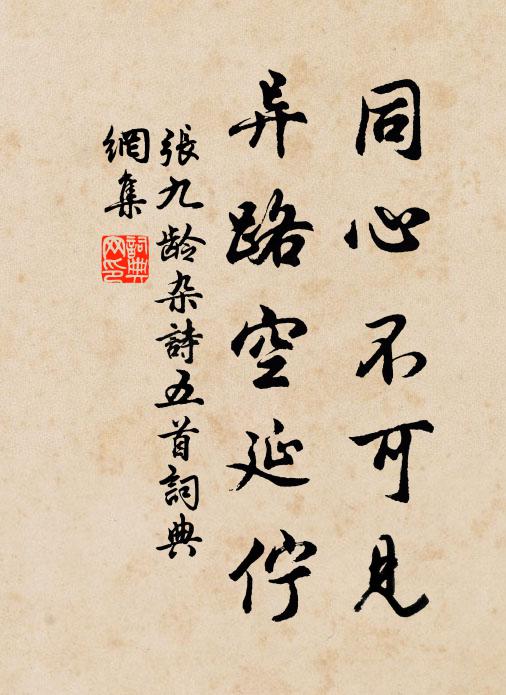 同心不可見
异路空延佇
張九龄杂詩五首詞典
網集
詞典网印